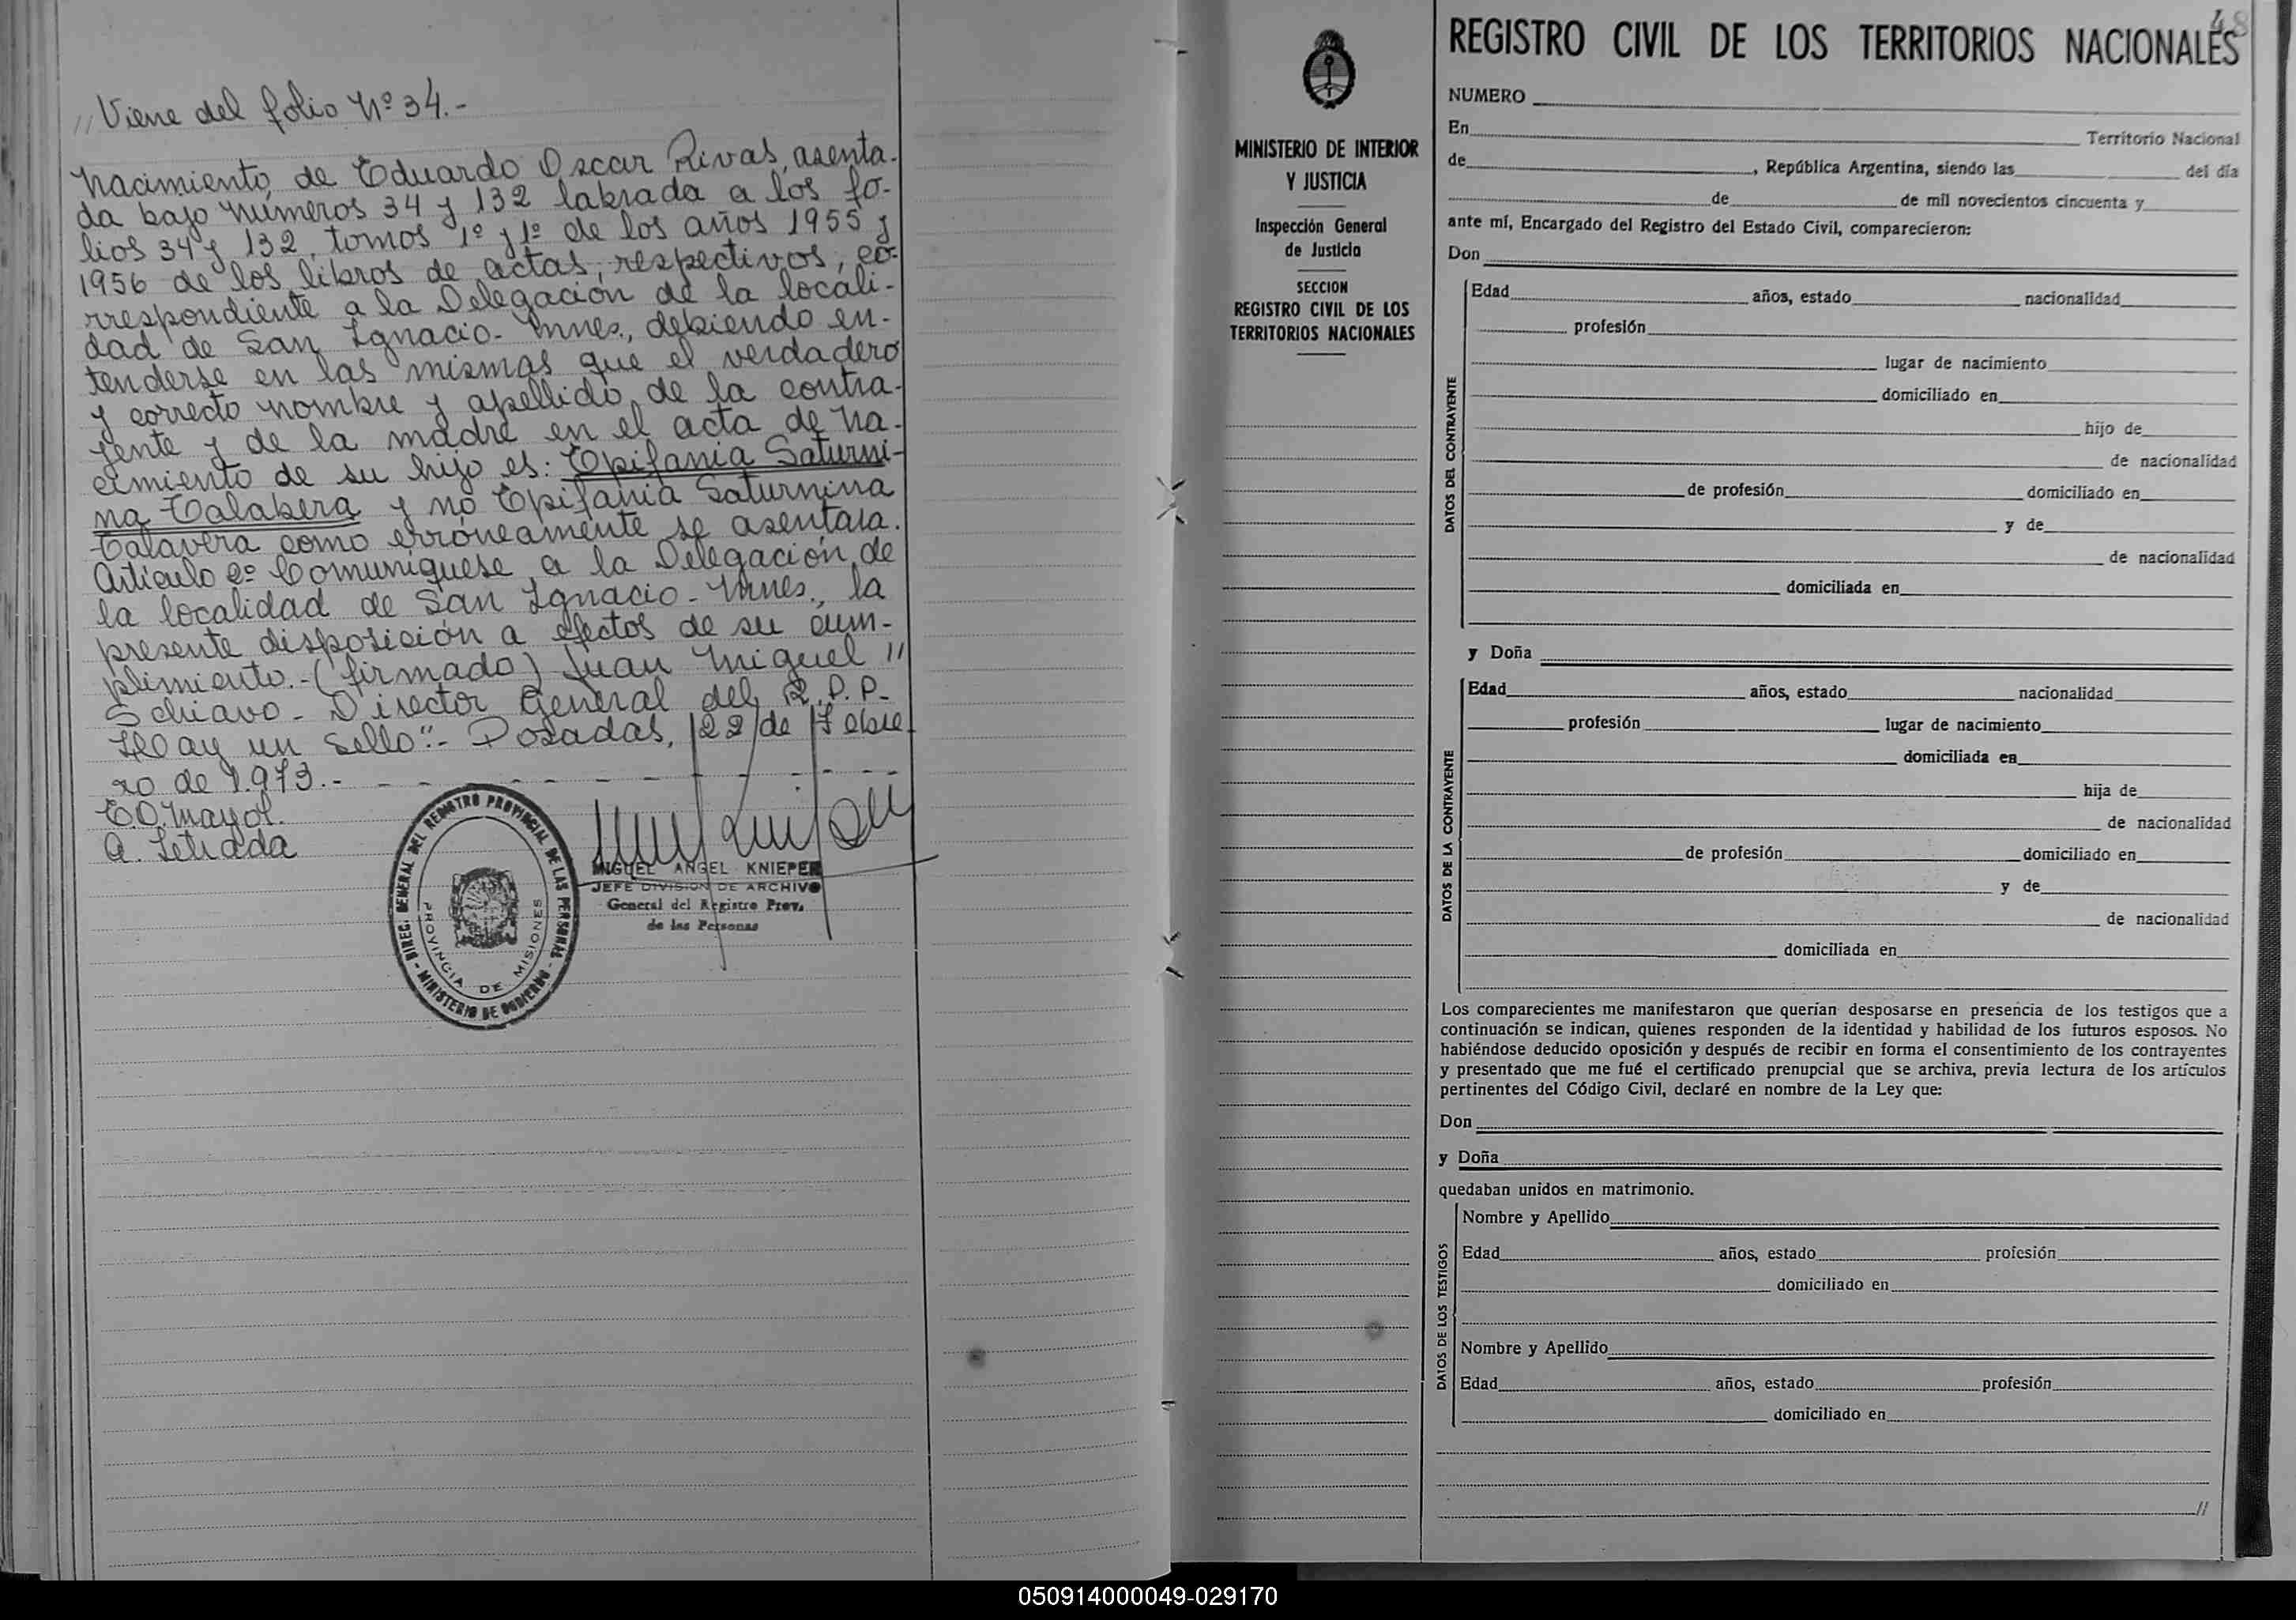 // Viene del folio Nº 34.-
nacimiento de Eduardo Oscar Rivas, asenta-
da bajo números 34 y 132 labrada a los fo-
lios 34 y 132, tomos 1º y 1º de los años 1955 y
1956 de los libros de actas, respectivos, co-
rrespondiente a la Delegación de la locali-
dad de San Ignacio - Mnes., debiendo en-
tenderse en las mismas que el verdadero
y correcto nombre y apellido de la contra-
yente y de la madre en el acta de na-
cimiento de su hijo es: Epifania Saturni-
na Talabera y no Epifania Saturnina
Talavera como erróneamente se asentara.
Artículo 2º Comuníquese a la Delegación de
la localidad de San Ignacio - Mnes., la
presente disposición a efectos de su cum-
plimiento.- (firmado) Juan Miguel //
Schiavo - Director General del R.P.P.-
Hay un sello".- Posadas, 22 de Febre-
ro de 1.973.-
E.O. Mayol.
DIREC. GENERAL DEL REGISTRO PROVINCIAL DE LAS PERSONAS - MINISTERIO DE GOBIERNO -
PROVINCIA DE MISIONES
MIGUEL ANGEL KNIEPER
JEFE DIVISION DE ARCHIVO
General del Registro Prov.
de las Personas
48
MINISTERIO DE INTERIOR
Y JUSTICIA
Inspección General
de Justicia
SECCION
REGISTRO CIVIL DE LOS
TERRITORIOS NACIONALES
REGISTRO CIVIL DE LOS TERRITORIOS NACIONALES
NUMERO
En Territorio Nacional
de , República Argentina, siendo las del día
de de mil novecientos cincuenta y
ante mí, Encargado del Registro del Estado Civil, comparecieron:
Don
DATOS DEL CONTRAYENTE
Edad años, estado nacionalidad
profesión
lugar de nacimiento
domiciliado en
hijo de
de nacionalidad
de profesión domiciliado en
y de
de nacionalidad
domiciliada en
y Doña
DATOS DE LA CONTRAYENTE
Edad años, estado nacionalidad
profesión lugar de nacimiento
domiciliada en
hija de
de nacionalidad
de profesión domiciliado en
y de
de nacionalidad
domiciliada en
Los comparecientes me manifestaron que querían desposarse en presencia de los testigos que a
continuación se indican, quienes responden de la identidad y habilidad de los futuros esposos. No
habiéndose deducido oposición y después de recibir en forma el consentimiento de los contrayentes
y presentado que me fué el certificado prenupcial que se archiva, previa lectura de los artículos
pertinentes del Código Civil, declaré en nombre de la Ley que:
Don
y Doña
quedaban unidos en matrimonio.
DATOS DE LOS TESTIGOS
Nombre y Apellido
Edad años, estado profesión
domiciliado en
Nombre y Apellido
Edad años, estado profesión
domiciliado en
//
050914000049-029170